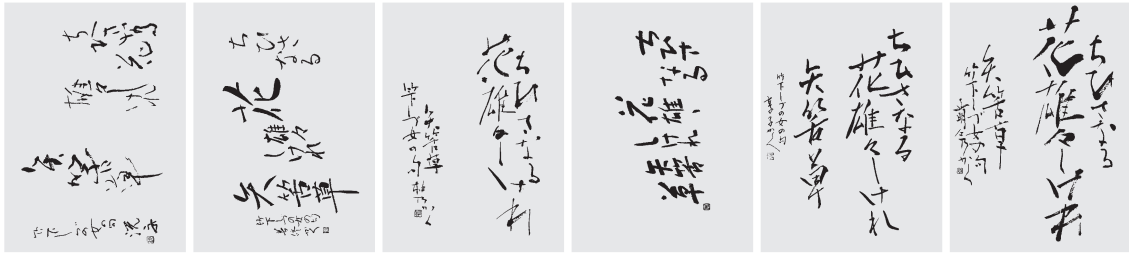 ちひさなる
花雄々しけれ
矢筈草
竹下しづの女の句
ちひさなる
花雄々しけれ
矢筈草
竹下しづの女の句
ちひさ
なる
花雄々
しけれ
矢筈
草
ちひさなる
花雄々しけれ
矢筈草
竹下しづの女の句
ちひさ
なる
花
雄々
しけれ
矢筈草
ちひさなる
花
雄々しけれ
矢筈草